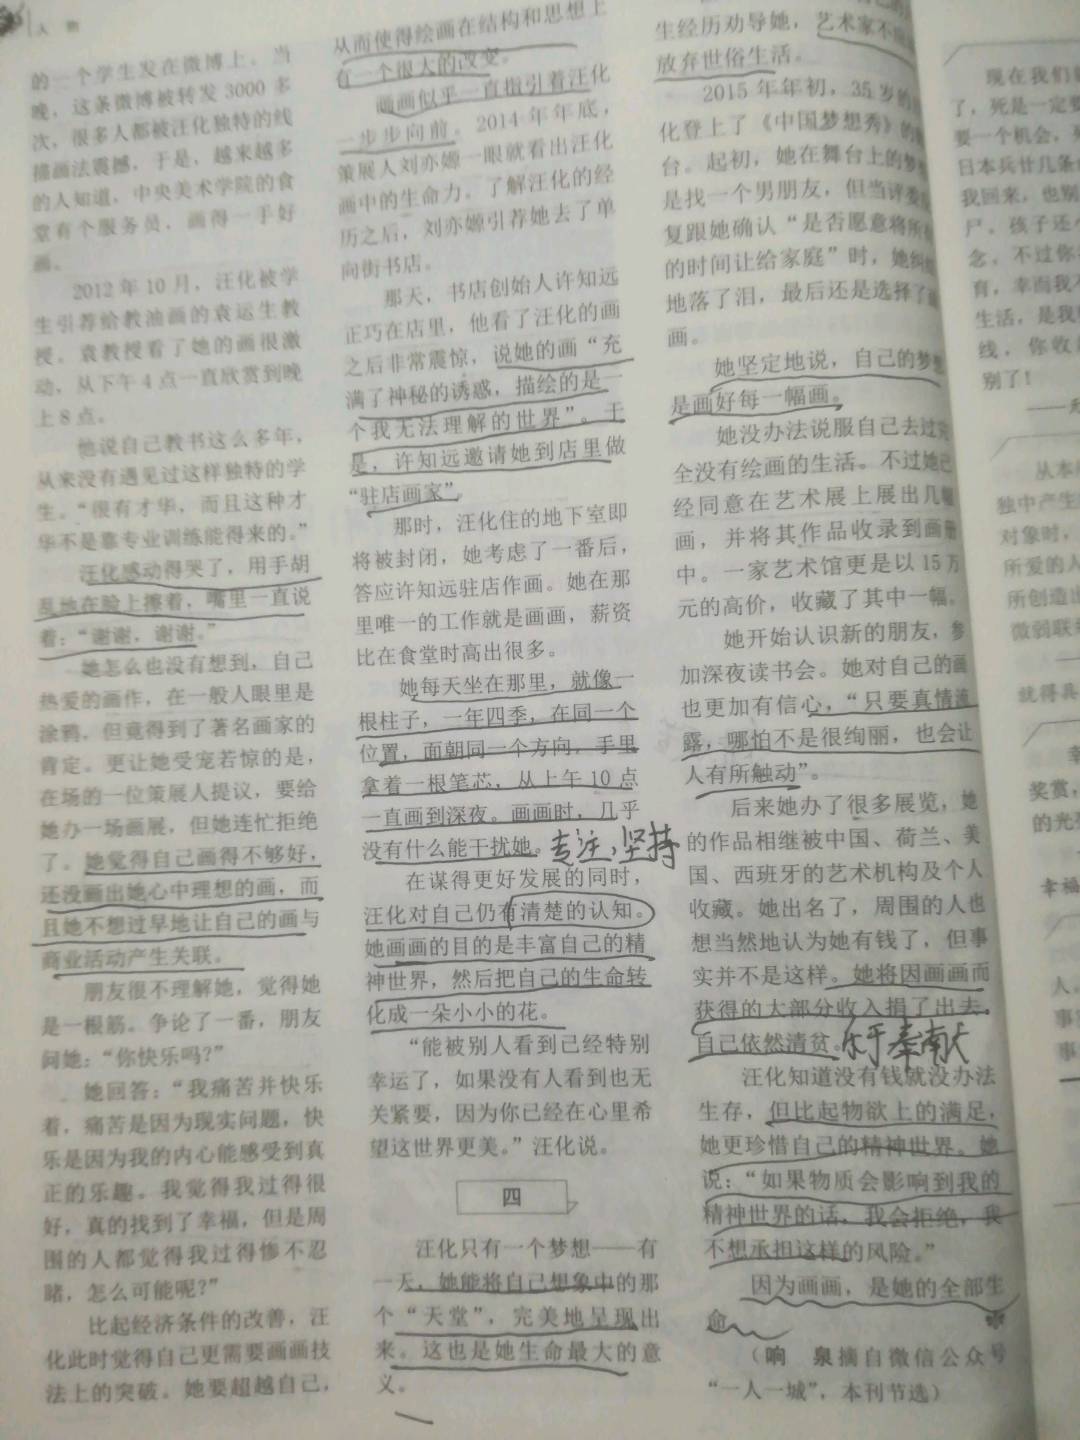 人物
的一个学生发在微博上。当
晚，这条微博被转发3000多
次，很多人都被汪化独特的线
描画法震撼，于是，越来越多
的人知道，中央美术学院的食
堂有个服务员，画得一手好
画。
2012年10月，汪化被学
生引荐给教油画的袁运生教
授。袁教授看了她的画很激
动，从下午4点一直欣赏到晚
上8点。
他说自己教书这么多年，
从来没有遇见过这样独特的学
生。“很有才华，而且这种才
华不是靠专业训练能得来的。”
汪化感动得哭了，用手胡
乱地在脸上擦着，嘴里一直说
着：“谢谢，谢谢。”
她怎么也没有想到，自己
热爱的画作，在一般人眼里是
涂鸦，但竟得到了著名画家的
肯定。更让她受宠若惊的是，
在场的一位策展人提议，要给
她办一场画展，但她连忙拒绝
了。她觉得自己画得不够好，
还没画出她心中理想的画，而
且她不想过早地让自己的画与
商业活动产生关联。
朋友很不理解她，觉得她
是一根筋。争论了一番，朋友
问她：“你快乐吗？”
她回答：“我痛苦并快乐
着，痛苦是因为现实问题，快
乐是因为我的内心能感受到真
正的乐趣。我觉得我过得很
好，真的找到了幸福，但是周
围的人都觉得我过得惨不忍
睹，怎么可能呢？”
比起经济条件的改善，汪
化此时觉得自己更需要画画技
法上的突破。她要超越自己，
从而使得绘画在结构和思想上
有一个很大的改变。
画画似乎一直指引着汪化
一步步向前。2014年年底，
策展人刘亦嫄一眼就看出汪化
画中的生命力。了解汪化的经
历之后，刘亦嫄引荐她去了单
向街书店。
那天，书店创始人许知远
正巧在店里，他看了汪化的画
之后非常震惊，说她的画“充
满了神秘的诱惑，描绘的是一
个我无法理解的世界”。于
是，许知远邀请她到店里做
“驻店画家”。
那时，汪化住的地下室即
将被封闭，她考虑了一番后，
答应许知远驻店作画。她在那
里唯一的工作就是画画，薪资
比在食堂时高出很多。
她每天坐在那里，就像一
根柱子，一年四季，在同一个
位置，面朝同一个方向，手里
拿着一根笔芯，从上午10点
一直画到深夜。画画时，几乎
没有什么能干扰她。专注，坚持
在谋得更好发展的同时，
汪化对自己仍有清楚的认知。
她画画的目的是丰富自己的精
神世界，然后把自己的生命转
化成一朵小小的花。
“能被别人看到已经特别
幸运了，如果没有人看到也无
关紧要，因为你已经在心里希
望这世界更美。”汪化说。
四
汪化只有一个梦想——有
一天，她能将自己想象中的那
个“天堂”，完美地呈现出
来。这也是她生命最大的意
义。
生经历劝导她，艺术家不
放弃世俗生活。
2015年年初，35岁的
化登上了《中国梦想秀》的
台。起初，她在舞台上的梦
是找一个男朋友，但当评委
复跟她确认“是否愿意将所
的时间让给家庭”时，她纠
地落了泪，最后还是选择了
画。
她坚定地说，自己的梦想
是画好每一幅画。
她没办法说服自己去过完
全没有绘画的生活。不过她已
经同意在艺术展上展出几幅
画，并将其作品收录到画册
中。一家艺术馆更是以15万
元的高价，收藏了其中一幅。
她开始认识新的朋友，参
加深夜读书会。她对自己的画
也更加有信心，“只要真情流
露，哪怕不是很绚丽，也会让
人有所触动”。
后来她办了很多展览，她
的作品相继被中国、荷兰、美
国、西班牙的艺术机构及个人
收藏。她出名了，周围的人也
想当然地认为她有钱了，但事
实并不是这样。她将因画画而
获得的大部分收入捐了出去，
自己依然清贫。乐于奉献
汪化知道没有钱就没办法
生存，但比起物欲上的满足，
她更珍惜自己的精神世界。她
说：“如果物质会影响到我的
精神世界的话，我会拒绝，我
不想承担这样的风险。”
因为画画，是她的全部生
命。
（响 泉摘自微信公众号
“一人一城”，本刊节选）
现在我们
了，死是一定要
要一个机会，死
日本兵廿几条
我回来，也别
尸。孩子还
念。不过你
育，幸而我不
生活，是我
线，你收
别了！
从本
独中产生
对象时，
所爱的人
所创造出
微弱联
就得具
幸
奖赏，
的光
幸福
人。
事
事